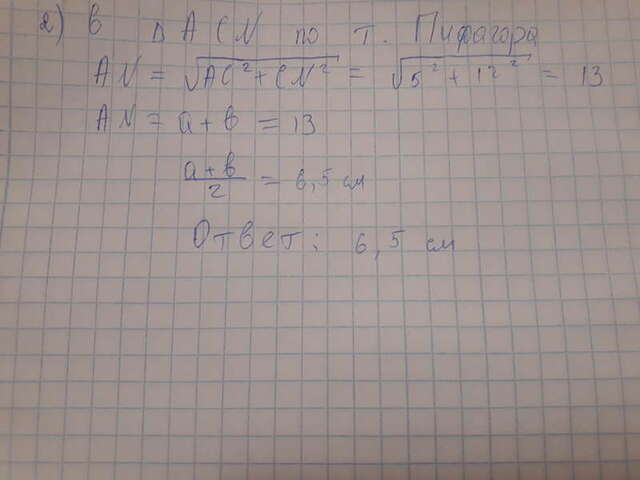 2) в Δ ACN по т. Пифагора
AN = √AC² + CN² = √5² + 12² = 13
AN = a + b = 13
a + b / 2 = 6,5 см
Ответ: 6,5 см